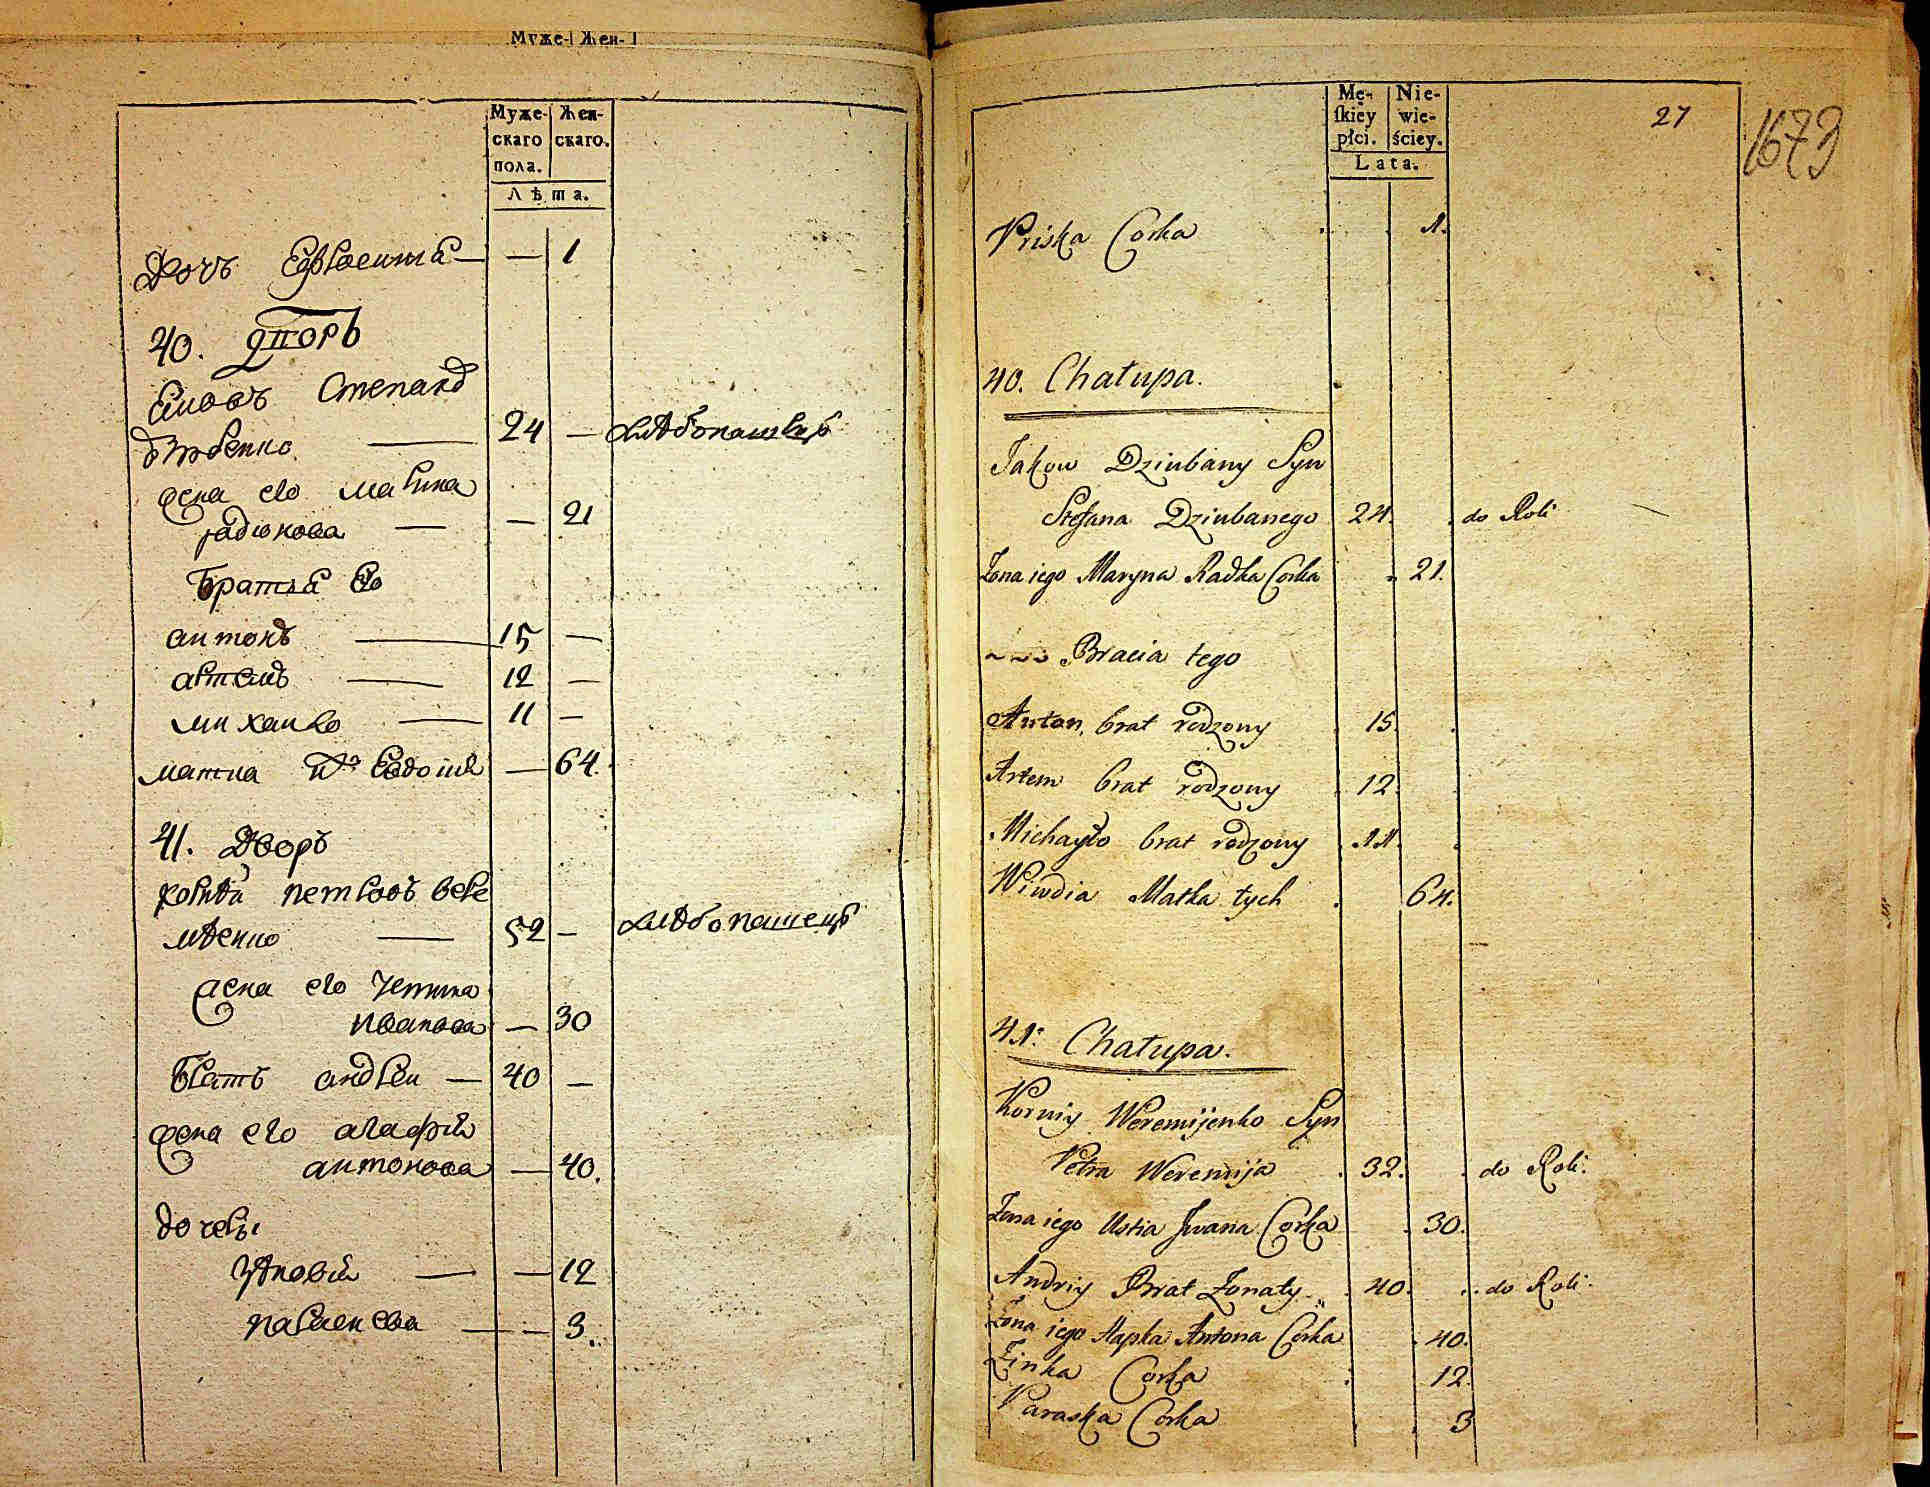 Муже-| Жен-|
Муже-
скаго
пола.
Жен-
скаго.
Лѣта.
Дочь Ефросинія — — 1
40. Дворъ
Яковъ Степанов
Дзюбенко — 24 — хлѣбопашецъ
жена его марина
радионова — — 21
братья его
антонъ — 15 —
артемъ — 12 —
михаило — 11 —
матка их Евдокия — 64.
41. Дворъ
корнѣй петровъ вере
мѣенко — 52 — хлѣбопашецъ
жена его устина
иванова — 30
братъ андреи — 40 —
жена его агафия
антонова — 40.
дочеры
зѣновия — — 12
параскева — — 3.
Mę-
skiey
płci.
Nie-
wie-
ściey.
Lata.
27
1673
Priska Corka 1.
40. Chałupa.
Jakow Dziubany Syn
Stefana Dziubanego 24. do Roli
Zona iego Maryna Radka Corka 21.
Bracia tego
Anton, brat rodzony 15.
Artem brat rodzony 12.
Michayło brat rodzony 11.
Wiwdia Matka tych 64.
41. Chałupa.
Korniy Weremijenko Syn
Petra Weremija 32. do Roli.
Zona iego Ustia Jwana Corka 30.
Andriy Brat Zonaty 40. do Roli.
Zona iego Hapka Antona Corka 40.
Zinka Corka 12.
Paraska Corka 3